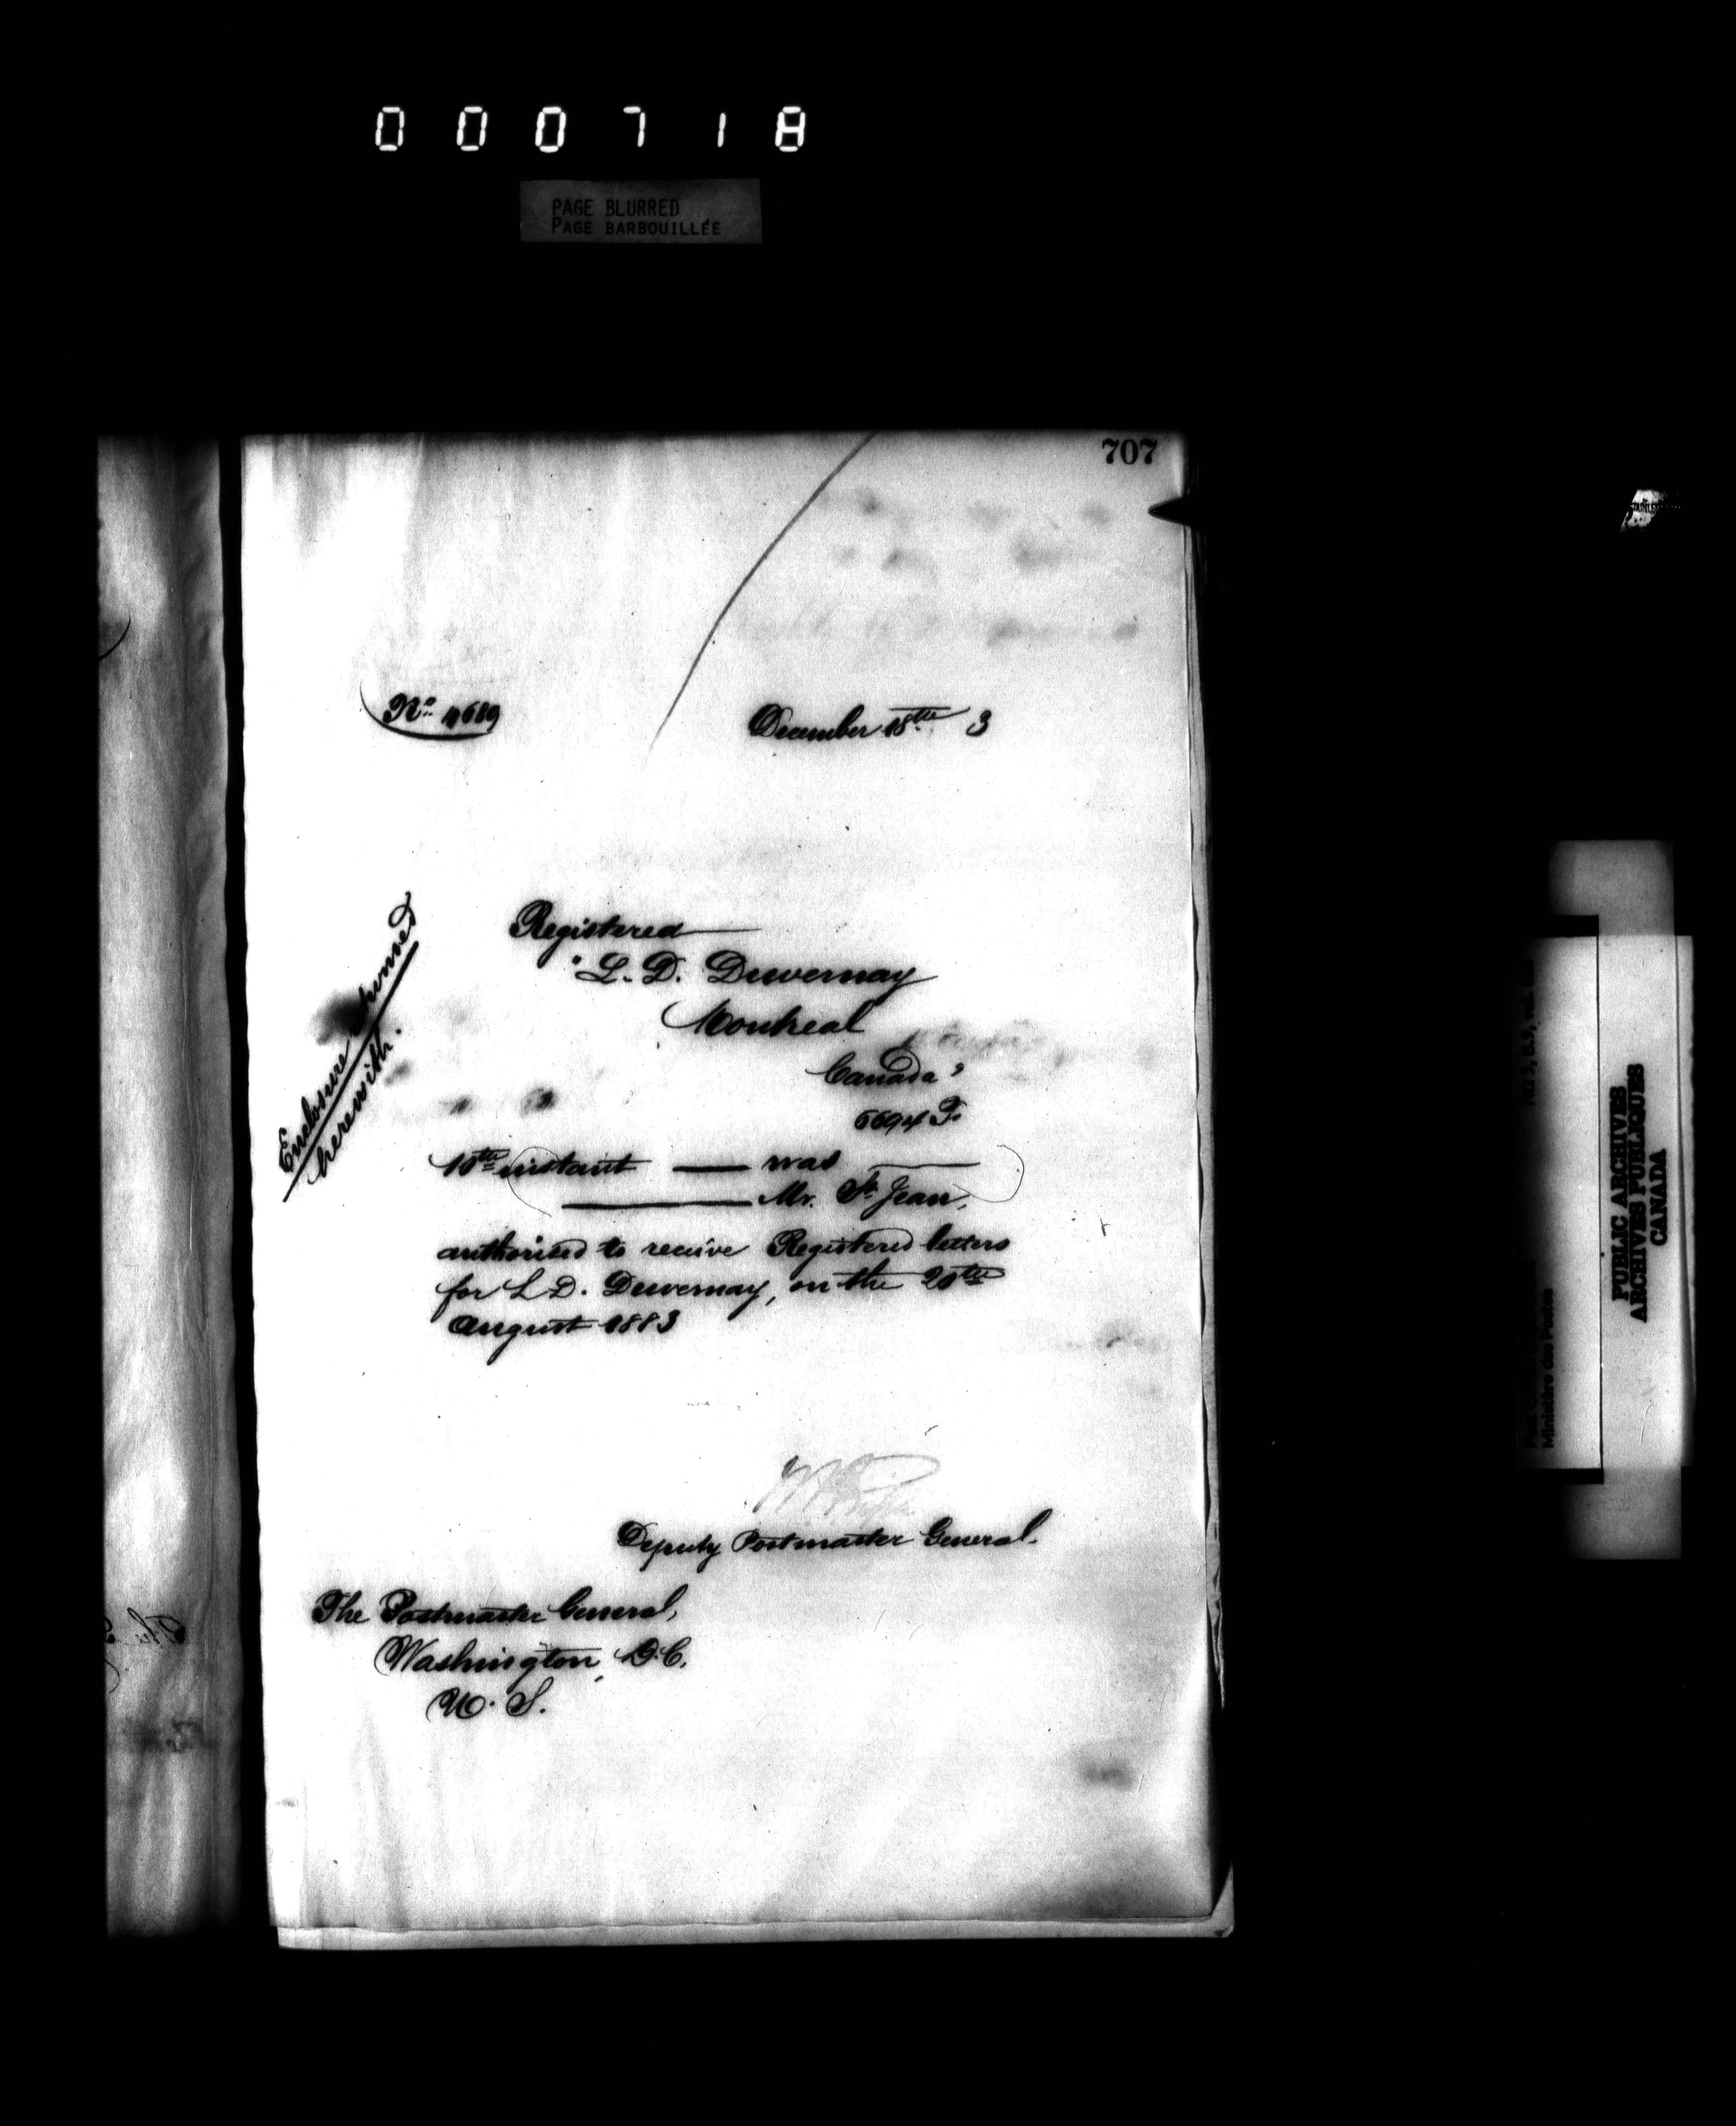 000718
PAGE BLURRED
PAGE BARBOUILLÉE
707
No 4689
December 18th 3
Enclosure returned
herewith.
Registered
"L. D. Duvernay
Montreal
Canada"
6694 F.
10th instant — was —
— Mr. St. Jean,
authorised to receive Registered letters
for L D. Duvernay, on the 20th
August 1883
Deputy Postmaster General.
The Postmaster General,
Washington, D.C.
U. S.
PUBLIC ARCHIVES
ARCHIVES PUBLIQUES
CANADA
Ministère des Postes